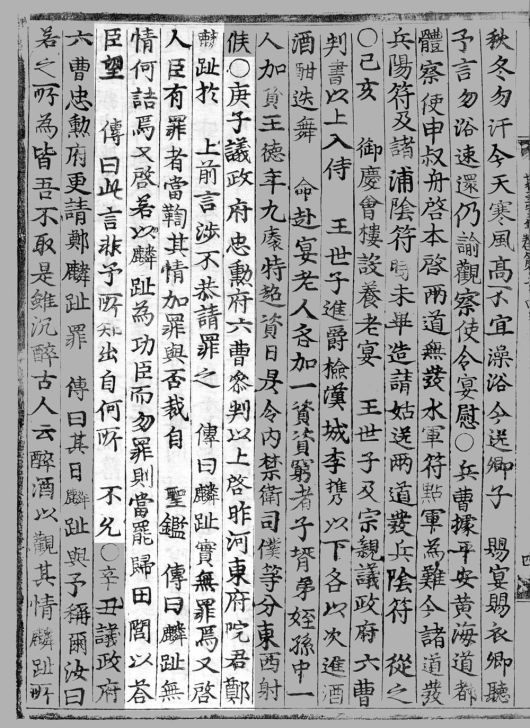 秋冬勿汗今天寒風高不宜澡浴今送卿子 賜宴賜衣卿聽
予言勿浴速還仍諭觀察使令宴慰○兵曹據平安黃海道都
體察使申叔舟啓本啓兩道無發水軍符點軍為難今諸道發
兵陽符及諸浦陰符時未畢造請姑送兩道發兵陰符 從之
○己亥 御慶會樓設養老宴 王世子及宗親議政府六曹
判書以上入侍 王世子進爵檢漢城李擕以下各以次進酒
酒酣迭舞 命赴宴老人各加一資資窮者子壻弟姪孫中一
人加資王德年九康特超資日昃令內禁衛司僕等分東西射
侯○庚子議政府忠勳府六曹參判以上啓昨河東府院君鄭
麟趾於 上前言涉不恭請罪之 傳曰麟趾實無罪焉又啓
人臣有罪者當鞫其情加罪與否裁自 聖鑑 傳曰麟趾無
情何詰焉又啓若以麟趾為功臣而勿罪則當罷歸田閭以答
臣望 傳曰此言非予所知出自何所 不允○辛丑議政府
六曹忠勳府更請鄭麟趾罪 傳曰其日麟趾與予稱爾汝曰
若之所為皆吾不取是雖沉醉古人云醉酒以觀其情麟趾所